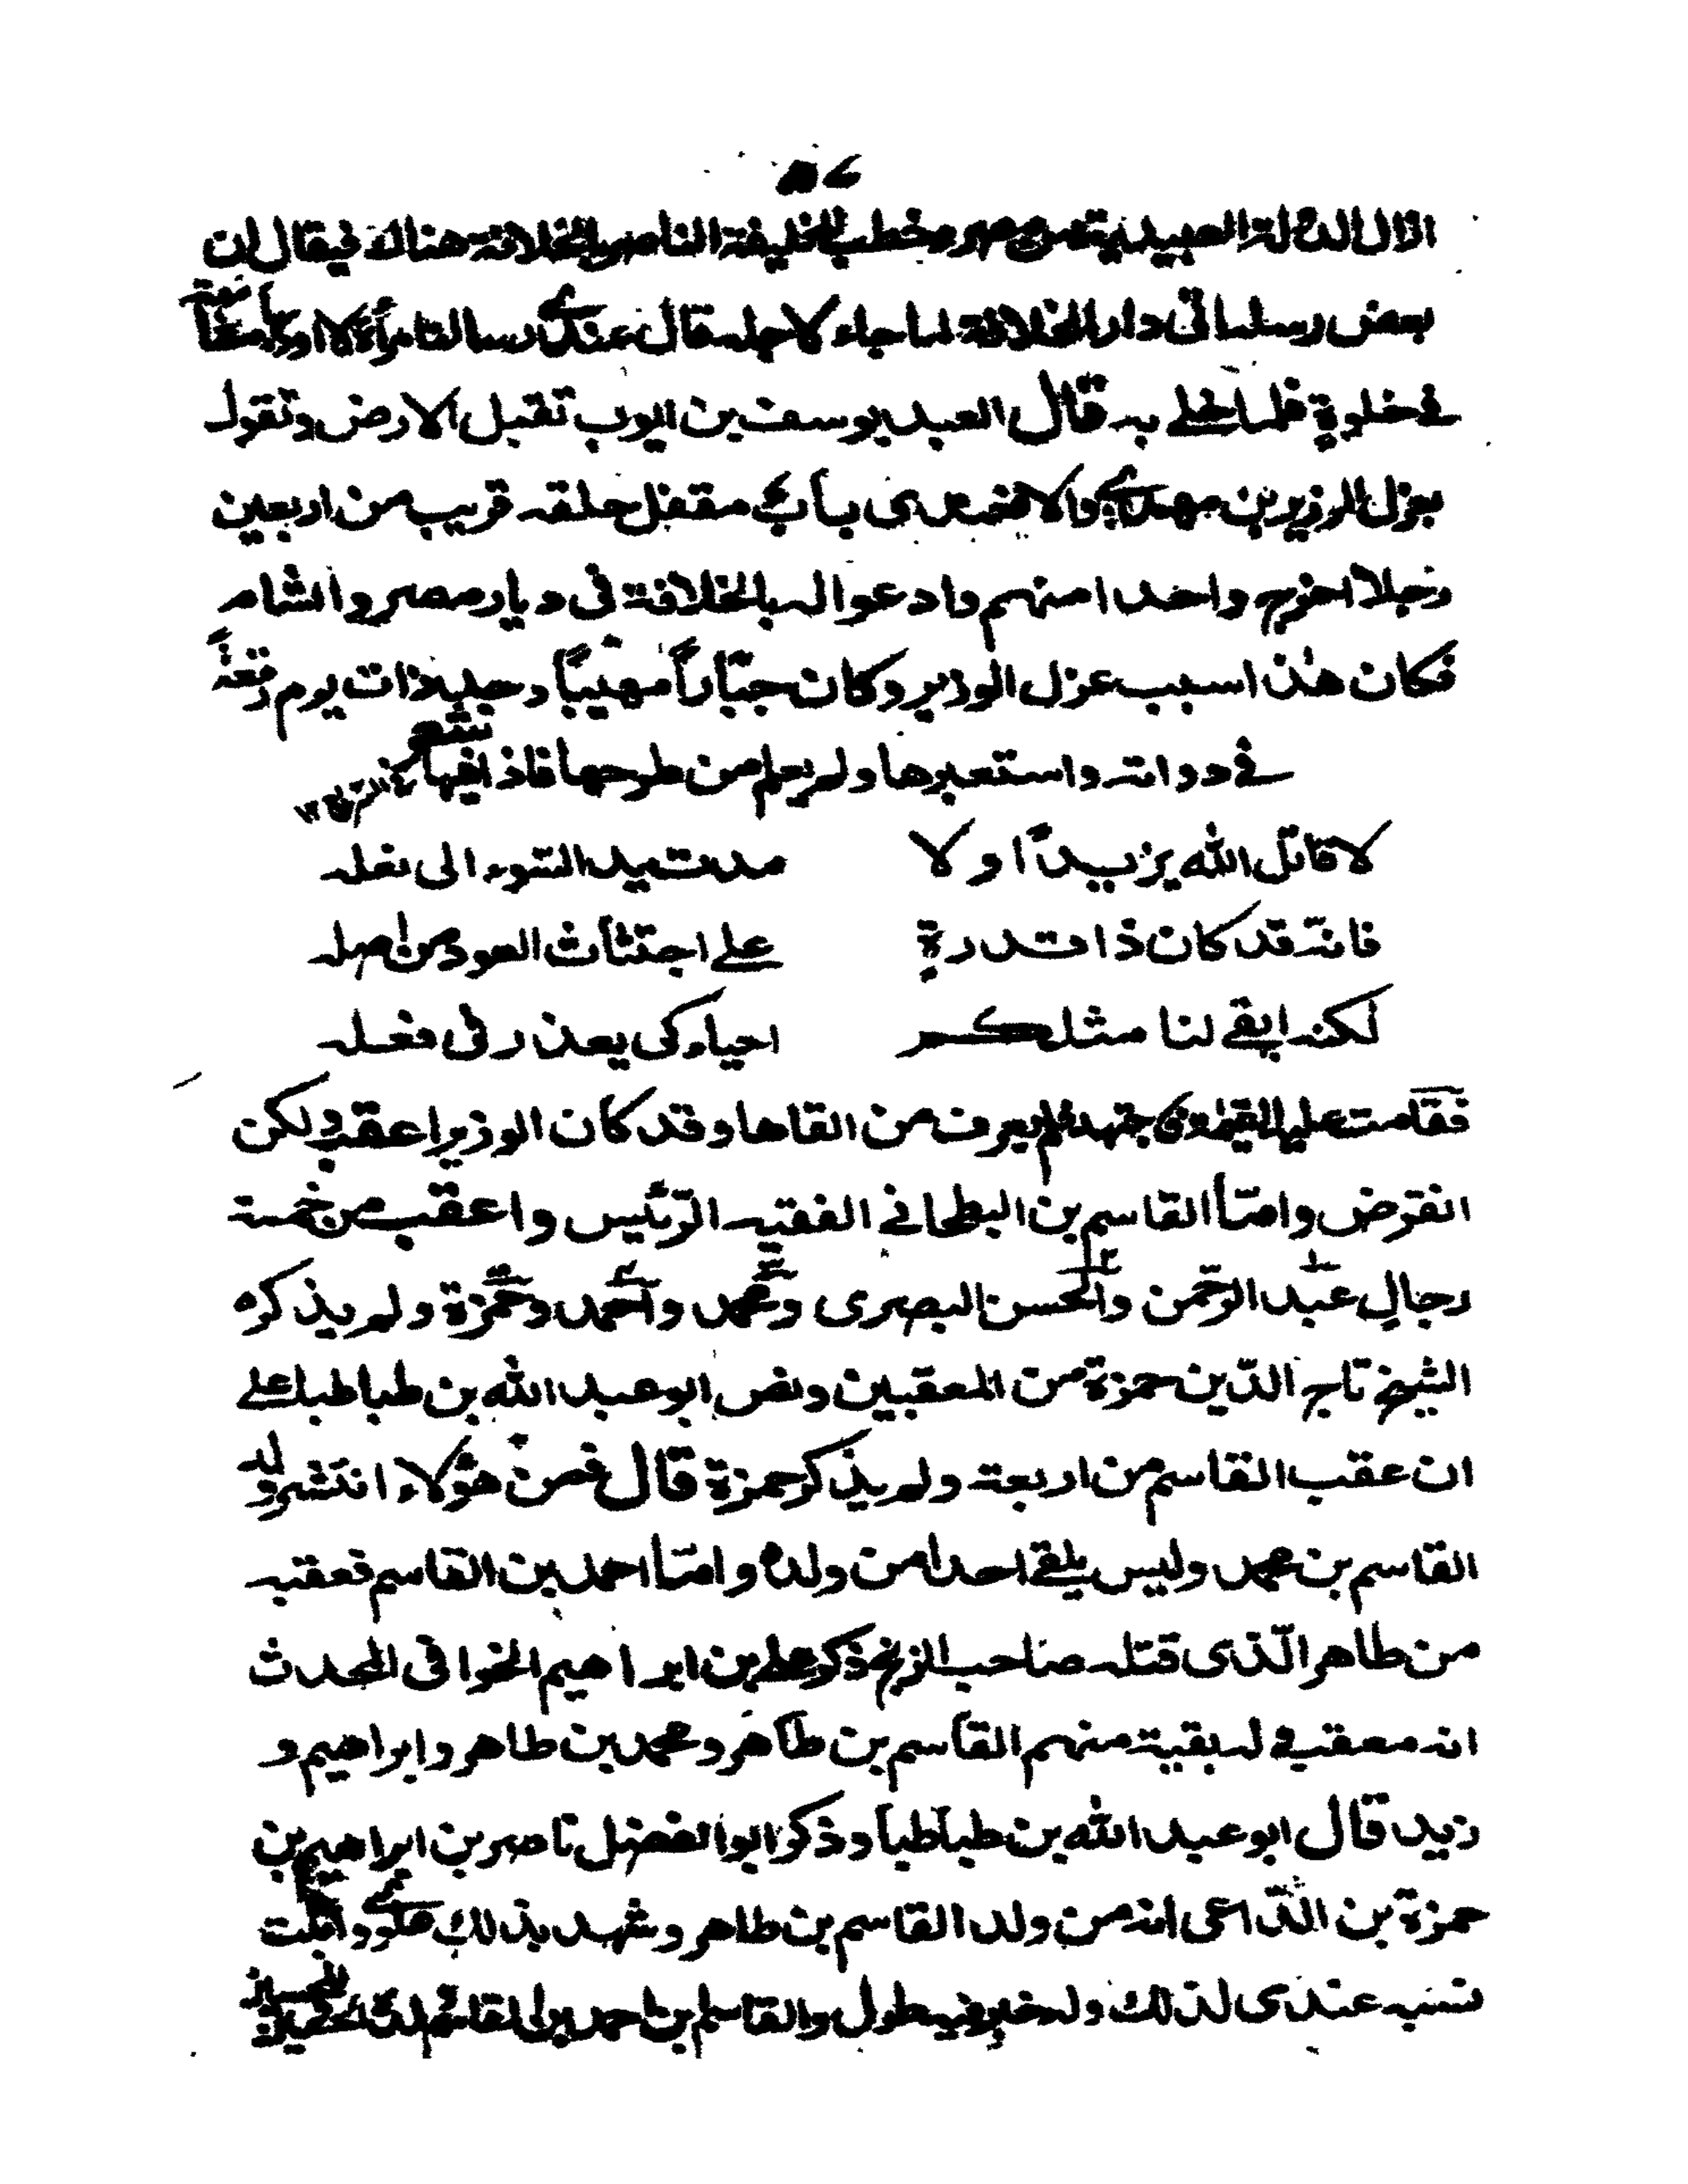 ازال الدولة العبيدية من مصر وخطب للخليفة الناصر بالخلافة هناك فيقال ان
بعض رسله اتى دار الخلافة لما جاء لاجله قال عندى رسالة
فى خلوة فلما خلى به قال العبد يوسف بن ايوب تقبل الارض وتقول
بعزل الوزير بن مهدى والا فعندى باب مقفل خلفه قريب من اربعين
رجلا اخرج واحدا منهم وادعو اله بالخلافة فى ديار مصر والشام
فكان هذا سبب عزل الوزير وكان جبّاراً مهيباً وجد يذات يوم رقعةً
فى دواته واستعبرها ولم يعلم من طرحها فاذا فيها شعر
لا قاتل الله يزيداً ولا مدت يد السّوء الى نعله
فانّه قد كان ذا قدرةٍ على اجتثاث العود من اصله
لكنه ابقى لنا مثلكم احياء كى يعذر فى فعله
فقامت عليه القيمة وى جتهد فلم يعرف من القاها وقد كان الوزير اعقب ولكن
انقرض وامّا القاسم بن البطحانى الفقيه الرّئيس واعقب من خمسة
رجال عبد الرّحمن والحسن البصرى ومحمد واحمد وحمزة ولم يذكره
الشيخ تاج الدّين حمزة من المعقبين ونص ابو عبد الله بن طباطبا على
ان عقب القاسم من اربعة ولم يذكر حمزة قال فمن هؤلاء انتشر ولد
القاسم بن محمد وليس يلقى احدا من ولده وامّا احمد بن القاسم فعقبه
من طاهر الّذى قتله صاحب الزنج ذكر على بن ابراهيم الخوافى المحدث
انه معقب فى له بقية منهم القاسم بن طاهر ومحمد بن طاهر وابراهيم و
زيد قال ابو عبد الله بن طباطبا وذكر ابو الفضل ناصر بن ابراهيم بن
حمزة بن الدّاعى انه من ولد القاسم بن طاهر وشهد بذلك علوى واثبت
نسبه عندى لذلك وله خبر فيه طول والقاسم بن احمد بن القاسم